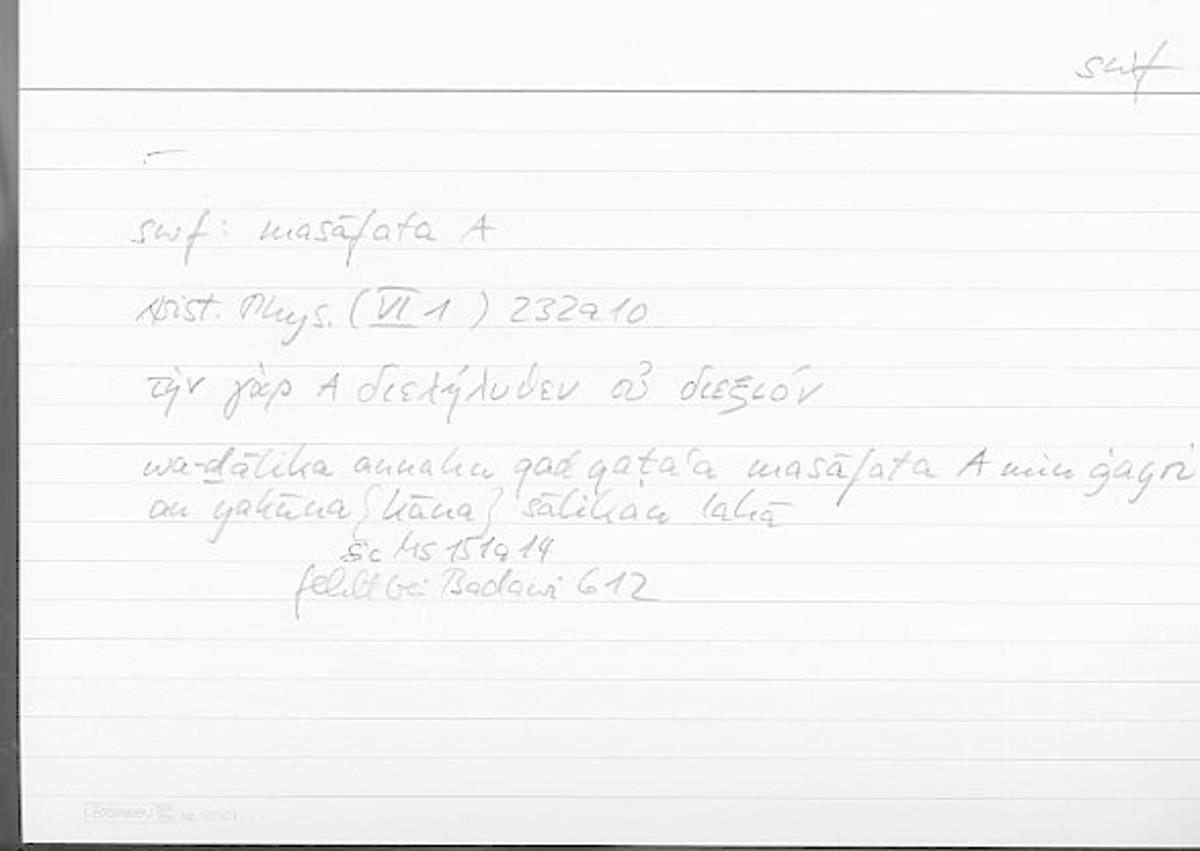 swf
swf: masāfata A
Arist. Phys. (VI 1) 232a10
τὴν γὰρ A διελήλυθεν οὐ διεξιόν
wa-ḏālika annahu qad qaṭaʿa masāfata A min ġayri
an yakūna {kāna} sālikan lahā
sic MS 151a14
fehlt bei Badawi 612